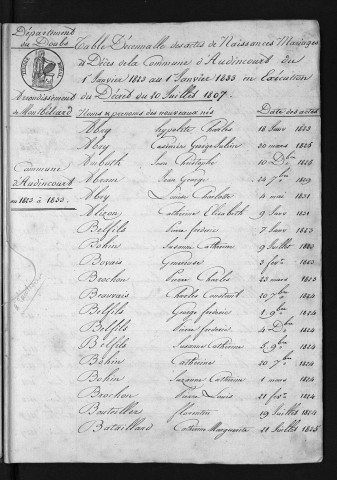 Département
du Doubs
Arrondissement
de Montbéliard
Commune
d'Audincourt
1823 à 1833
Table Décennalle des actes de Naissances Mariages
& Décès de la Commune d'Audincourt du
1er Janvier 1823 au 1er Janvier 1833 en Exécution
du Décrit du 20 Juillet 1807.
Noms & prenoms des nouveaux nés Date des actes
hypolite Charles 18 Janv 1823
Casimire George Julien 30 mars 1825
Jean Christophe 10 Xbre 1825
Abram Jean George 24 7bre 1829
Louise Charlotte 4 mai 1831
Catherine Elisabeth 9 Janv 1831
Belfils Pierre frederic 7 Janv 1823
Bohin Suzanne Catherine 9 Juillet
Bovais 3 fevr 1823
Brochon Pierre Charles 23 mars 1823
Beauvais Charles Constant 20 7bre
Belfils George frederic 8 1824
Belfils Pierre frederic 4 1824
Belfils Suzanne Catherine 5 9bre 1824
Bohin Catherine 20 7bre 1824
Bohin Suzanne Catherine 1 mars 1824
Brochon Pierre Louis 21 fevr 1824
Bouteiller florentin 19 Juillet 1824
Bataillard Catherine Marguerite 21 Juillet 1825